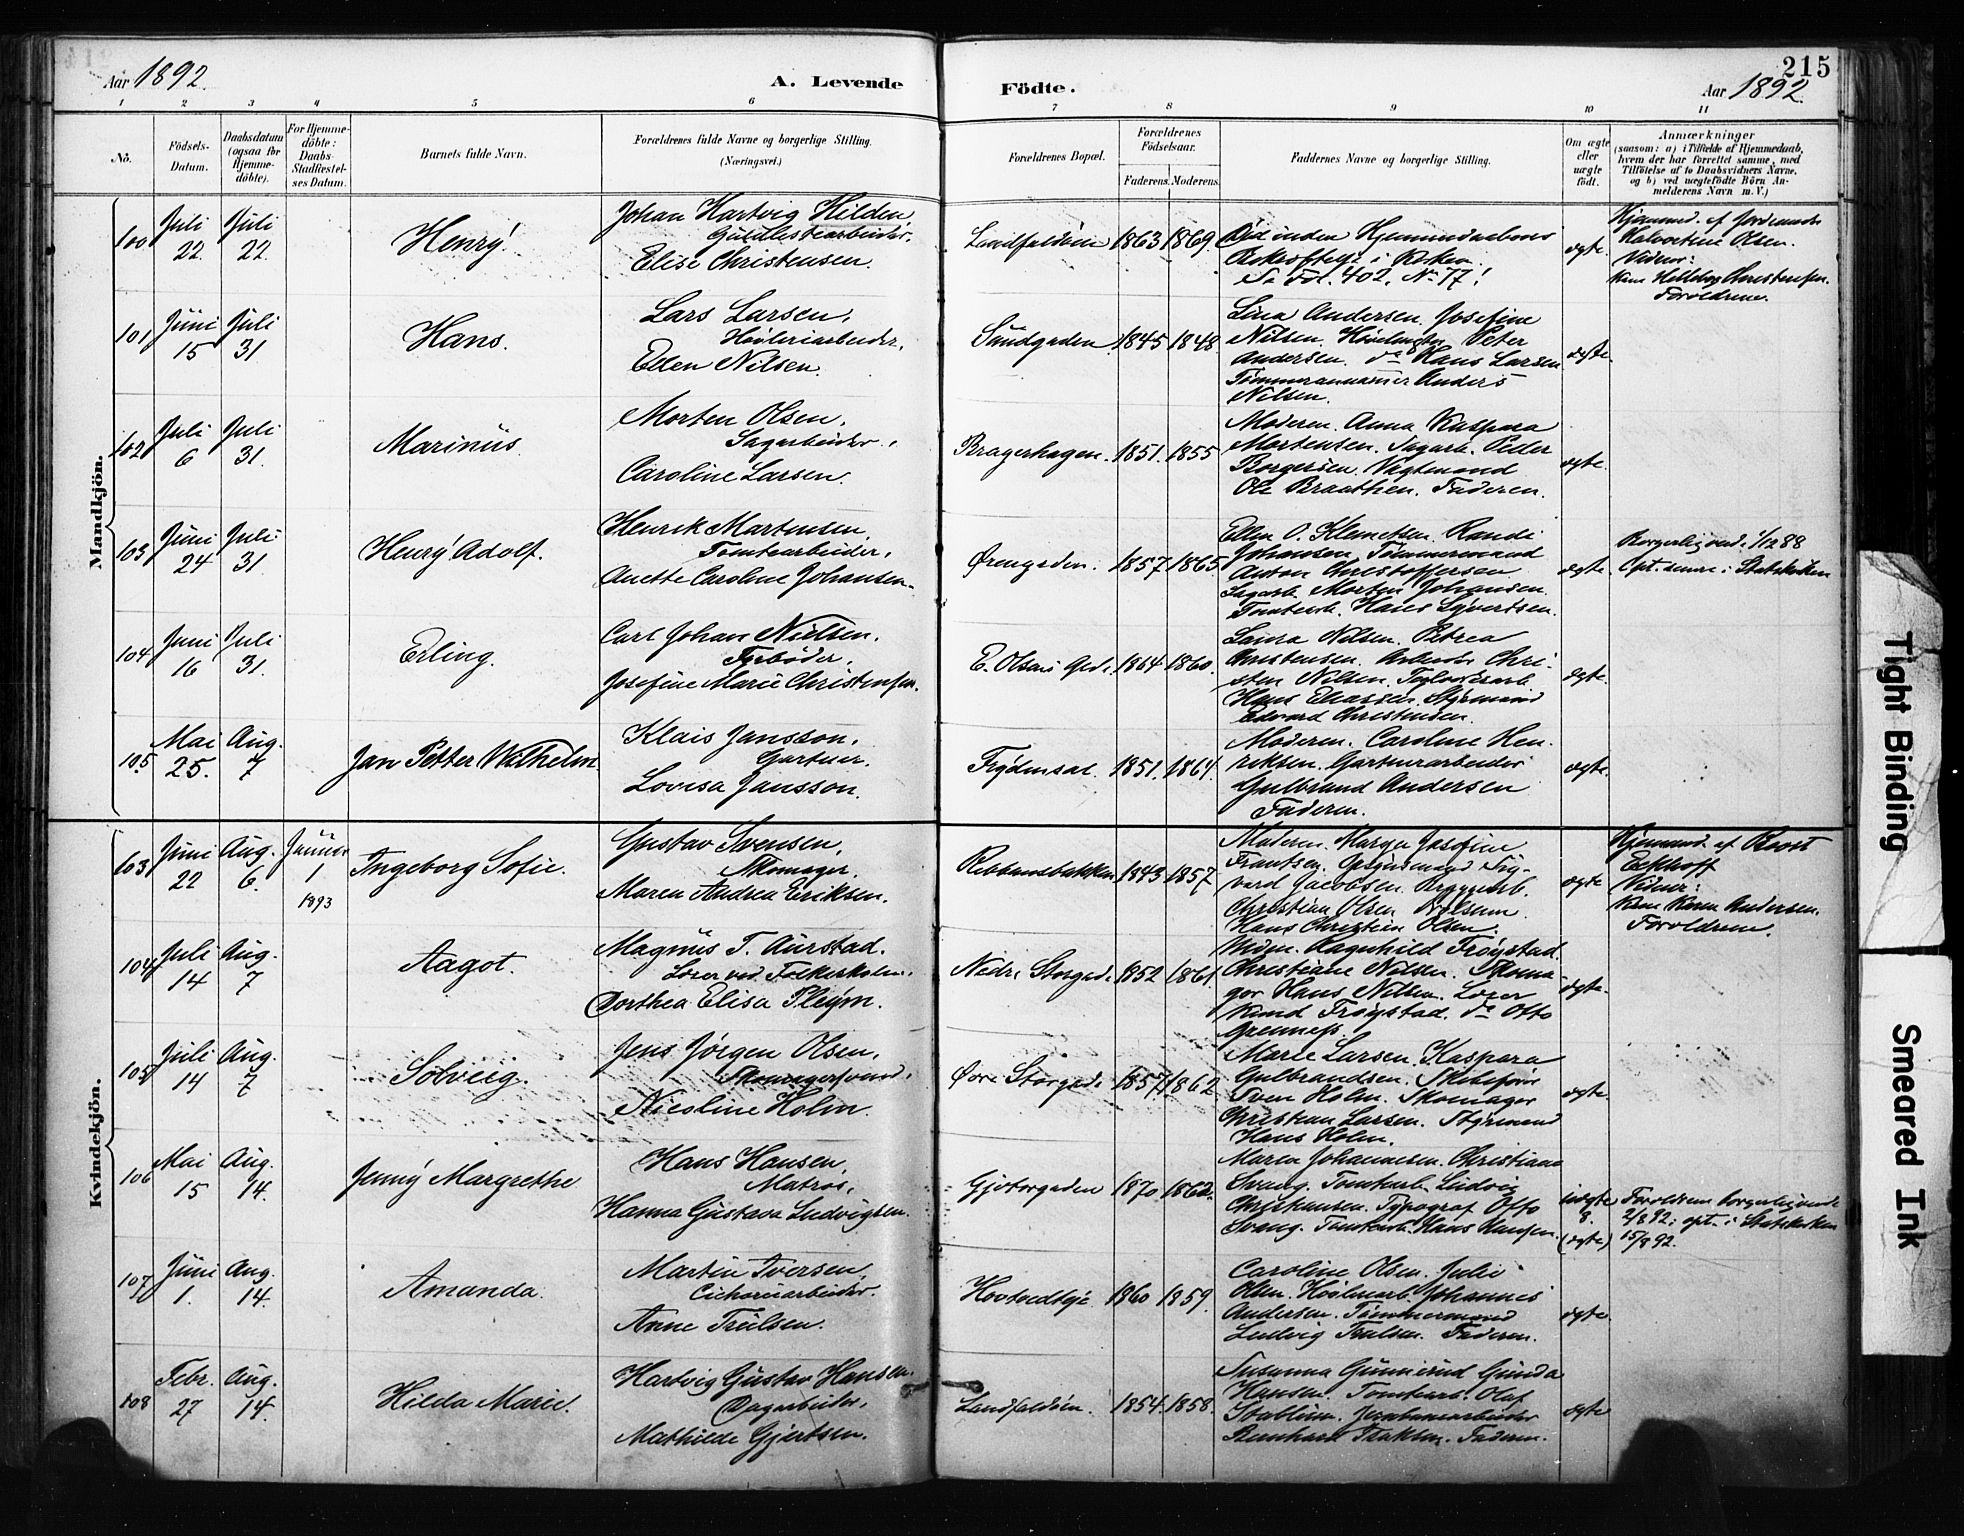 Aar 1892.
A. Levende
Födte.
Aar 1892.
215
1 2 3 4 5 6 7 8 9 10 11
No.
Födsels-
Datum.
Daabsdatum
(ogsaa for
Hjemme-
döbte).
For Hjemme-
döbte:
Daabs-
Stadfæstel-
ses Datum.
Barnets fulde Navn.
Forældrenes fulde Navne og borgerlige Stilling.
(Næringsvei.)
Forældrenes Bopæl.
Forældrenes
Födselsaar.
Faderens. Moderens.
Faddernes Navne og borgerlige Stilling.
Om ægte
eller
uægte
födt.
Anmærkninger
(saasom: a) i Tilfælde af Hjemmedaab,
hvem der har forrettet samme, med
Tilföielse af to Daabsvidners Navne,
og b) ved uægtefödte Börn An-
melderens Navn m. V.)
Mandkjön.
100 Juli 22. Juli 22.
Henry.
Johan Hartvig Hilden,
Guldlistearbeider.
Elise Christensen.
Landfaldøen 1863 1869.
Død inden Hjemmedaabens
Bekræftelse i Kirken.
Se Fol. 402. No 77!
ægte.
Hjemmed. af Jordmoder
Halvorine Olsen.
Vidner:
Forældrene.
101 Juni 15 Juli 31
Hans.
Lars Larsen,
Høvleriarbeider.
Ellen Nilsen.
Sandgaden. 1845 1848.
Lina Andersen. Josefine
Nilsen. Peter
Andersen. do Hans Larsen
Tømmermand Anders
Nilsen.
ægte.
102 Juli 6 Juli 31.
Marinus.
Morten Olsen,
Sagarbeider.
Caroline Larsen.
Bragerhagen. 1851. 1855
Moderen. Anna Kaspara
Mortensen. Sagarb. Peder
Borgersen. Vægtemand
Ole Braathen. Faderen.
ægte.
103 Juni 24 Juli 31
Henry Adolf.
Henrik Martinsen,
Tomtearbeider,
Anette Caroline Johansen.
Ørengaden. 1857 1865
Ellen O. Klemetsen. Randi
Johansen. Tømmermand
Anton Christoffersen
Sagarb. Morten Johansen.
Tomtearb. Hans Syvertsen.
ægte.
Borgerlig viede 1/12 88
Opt. senere i Statskirken
104 Juni 16 Juli 31.
Erling.
Carl Johan Nielsen.
Fyrbøder,
Josefine Marie Christensen.
E. Olsens Gd. 1864 1860.
Laura Nilsen. Petrea
Christensen. Arbeider Chri-
sten Nilsen. Teglværksarb.
Hans Eliassen. Styrmand
Edvard Christensen.
ægte.
105 Mai 25. Aug. 7
Jan Petter Wilhelm
Klas Jansson,
Gartner.
Lovisa Jansson.
Frydensal. 1851. 1864.
Moderen. Caroline Hen-
riksen. Gartnerarbeider
Gulbrand Andersen
Faderen.
ægte.
Kvindekjön.
103 Juni 22 Aug. 6. Januar 1 1893
Ingeborg Sofie.
Gustav Svensen,
Skomager.
Maren Andrea Eriksen.
Rebbanebakken 1843 1857
Moderen. Marga Josefine
Frantsen. Sig-
vard Jacobsen. Bryggearb.
Christian Olsen
Hans Christian Olsen.
ægte
Hjemmed. af
Eckhoff
Vidner:
Karen Andersen.
Forældrene.
104 Juli 14 Aug. 7
Aagot.
Magnus T. Aurstad.
Lærer ved Folkeskolen.
Dorthea Elisa Fleym.
Nedre Storgd. 1852 1861.
Moderen. Ragnhild Frøystad.
Christiane Nilsen. Skoma-
ger Hans Nilsen. Lærer
Knud Frøystad. do Otto
Grenness.
ægte.
105 Juli 14 Aug. 7
Solveig.
Jens Jørgen Olsen,
Skomagersvend,
Nicoline Holm.
Øvre Storgd. 1857 1862
Marie Larsen. Kaspara
Gulbrandsen. Skibsfører
Sven Holm. Skomager
Christian Larsen. Styrmand
Hans Holm.
ægte.
106 Mai 15 Aug. 14.
Jenny Margrethe
Hans Hansen,
Matros,
Hanna Gustava Ludvigsen.
Gjetergaden 1870 1862.
Maren Johannesen. Christiane
Svang. Tomtearb. Ludvig
Christiansen. Typograf Otto
Svang. Tomtearb. Hans Hansen.
uægte
(ægte)
Forældrene borgerlig viede
2/8 92; opt. i Statskirken
15/8 92.
107 Juni 1. Aug. 14.
Amanda.
Martin Iversen,
Cichoriearbeider.
Anne Truelsen.
Hovtvedteje 1860 1859.
Caroline Olsen. Julie
Olsen. Høvleriarb. Johannes
Andersen. Tømmermand
Ludvig Trulsen. Faderen.
ægte.
108 Febr. 27 Aug. 14.
Hilda Marie.
Hartvig Gustav Hansen,
Dagarbeider,
Mathilde Gjertsen.
Landfaldøen. 1854. 1858.
Susanna Gunnerud Gunda
Hansen. Tomtearb. Olaf
Bernhard Faderen.
ægte
Tight Binding
Smeared Ink